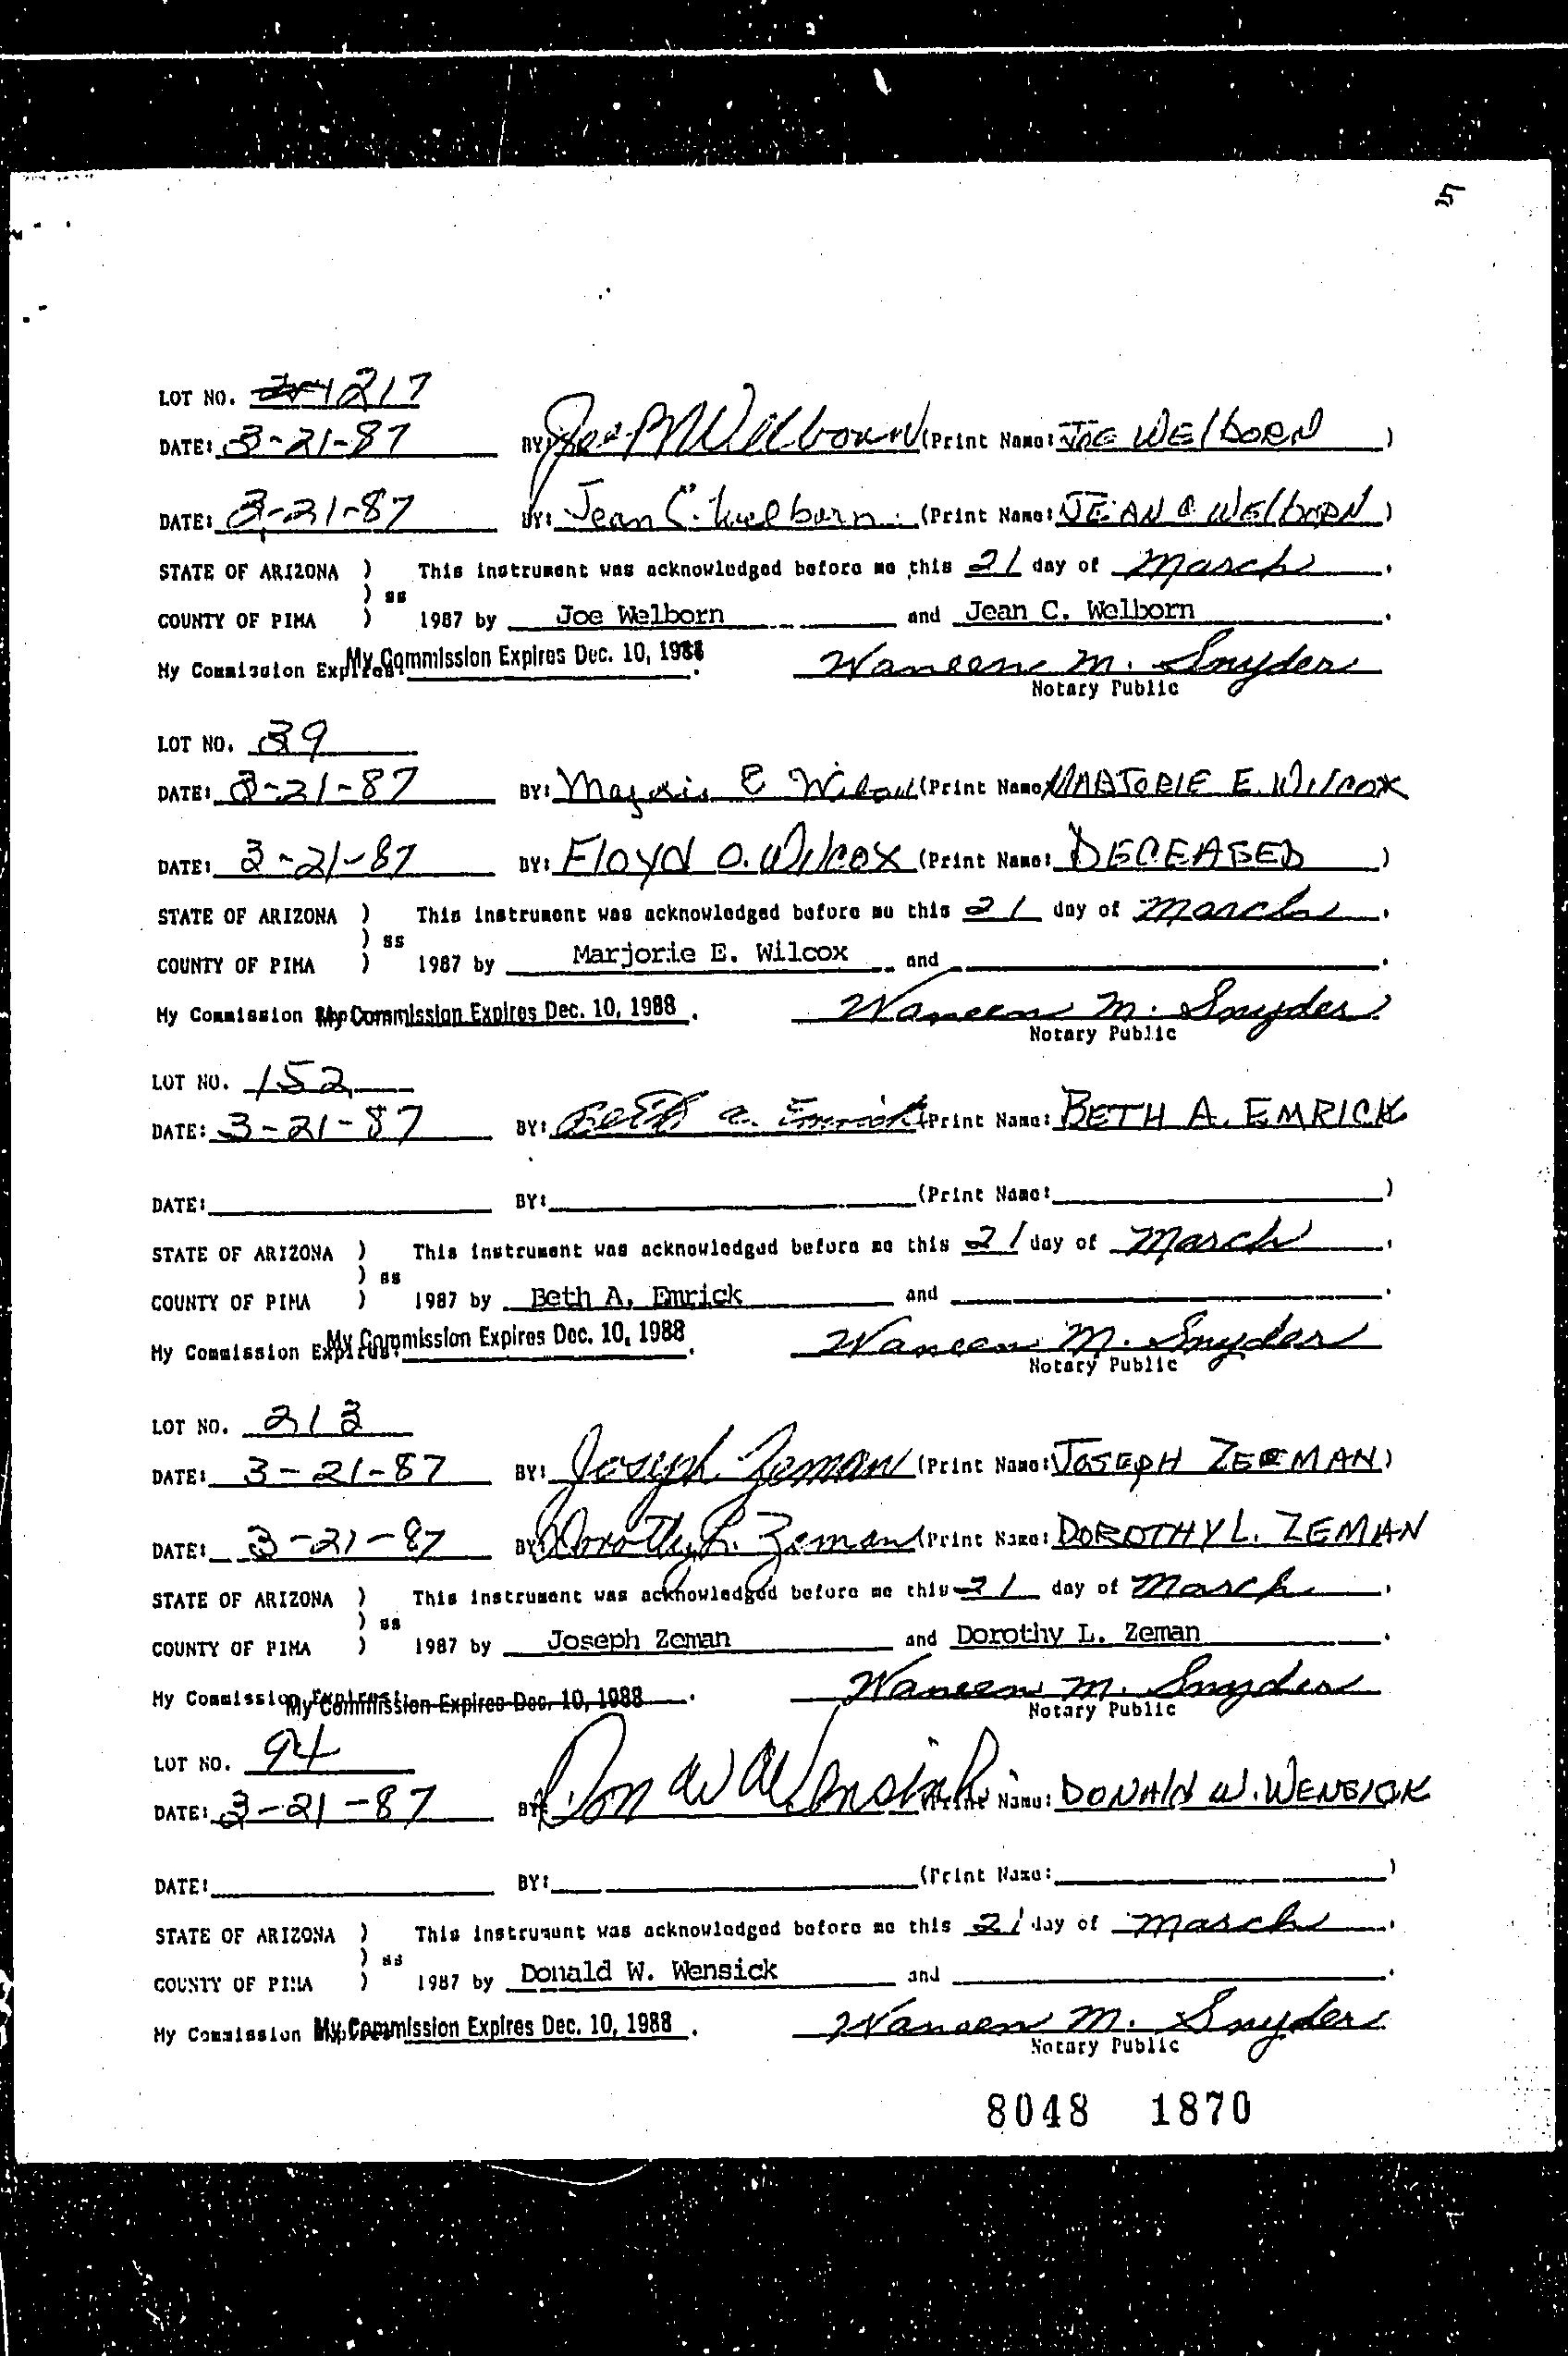 5
LOT NO. 217
DATE: 3-21-87 BY: Joe M Welborn (Print Name: JOE WElboRN )
DATE: 3-21-87 BY: Jean C. Welborn (Print Name: JEAN C WElboRN )
STATE OF ARIZONA ) This instrument was acknowledged before me this 21 day of March .
) ss
COUNTY OF PIMA ) 1987 by Joe Welborn and Jean C. Welborn .
My Commission Expires: My Commission Expires Dec. 10, 1988 . Waneen M. Snyder
Notary Public
LOT NO. 39
DATE: 3-21-87 BY: Marjorie E Wilcox (Print Name: MARJORIE E. WIlcOX
DATE: 3-21-87 BY: Floyd O. Wilcox (Print Name: DECEASED )
STATE OF ARIZONA ) This instrument was acknowledged before me this 21 day of March .
) ss
COUNTY OF PIMA ) 1987 by Marjorie E. Wilcox and .
My Commission My Commission Expires Dec. 10, 1988 . Waneen M. Snyder
Notary Public
LOT NO. 152
DATE: 3-21-87 BY: Beth A. Emrick (Print Name: BETH A. EMRICK
DATE: BY: (Print Name: )
STATE OF ARIZONA ) This instrument was acknowledged before me this 21 day of March .
) ss
COUNTY OF PIMA ) 1987 by Beth A. Emrick and .
My Commission Expires: My Commission Expires Dec. 10, 1988 . Waneen M. Snyder
Notary Public
LOT NO. 213
DATE: 3-21-87 BY: Joseph Zeman (Print Name: JOSEPH ZEMAN )
DATE: 3-21-87 BY: Dorothy L. Zeman (Print Name: DOROTHY L. ZEMAN
STATE OF ARIZONA ) This instrument was acknowledged before me this 21 day of March .
) ss
COUNTY OF PIMA ) 1987 by Joseph Zeman and Dorothy L. Zeman .
My Commission Expires: My Commission Expires Dec. 10, 1988 . Waneen M. Snyder
Notary Public
LOT NO. 94
DATE: 3-21-87 BY: Don W Wensick (Print Name: DONAld W. WENSICK
DATE: BY: (Print Name: )
STATE OF ARIZONA ) This instrument was acknowledged before me this 21 day of March .
) ss
COUNTY OF PIMA ) 1987 by Donald W. Wensick and .
My Commission My Commission Expires Dec. 10, 1988 . Waneen M. Snyder
Notary Public
8048 1870